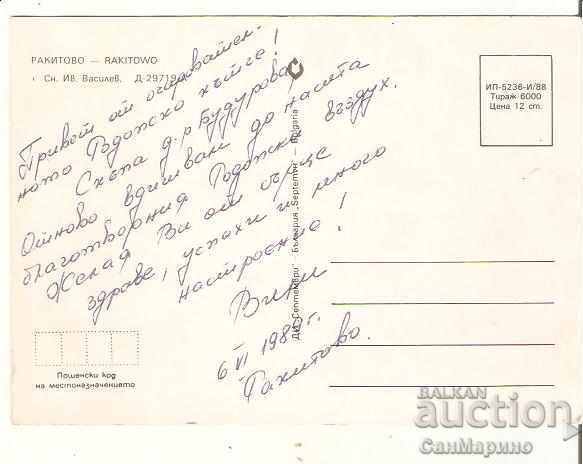 РАКИТОВО — RAKITOWO
Сн. Ив. Василев, Д-29719-А
ИП-5236-И/88
Тираж 6000
Цена 12 ст.
Привет от очарователн-
ното Родопско кътче!
Скъпа д-р Будурова,
Отново вдишвам до насита
благотворния Родопски въздух.
Желая Ви от сърце
здраве, успехи и много
настроение!
6 VI 1989г.
Ракитово.
ДИ „Септември“ България „Septemvri“ — Bulgaria
Пощенски код
на местоназначението
BALKAN
auction
СанМарино